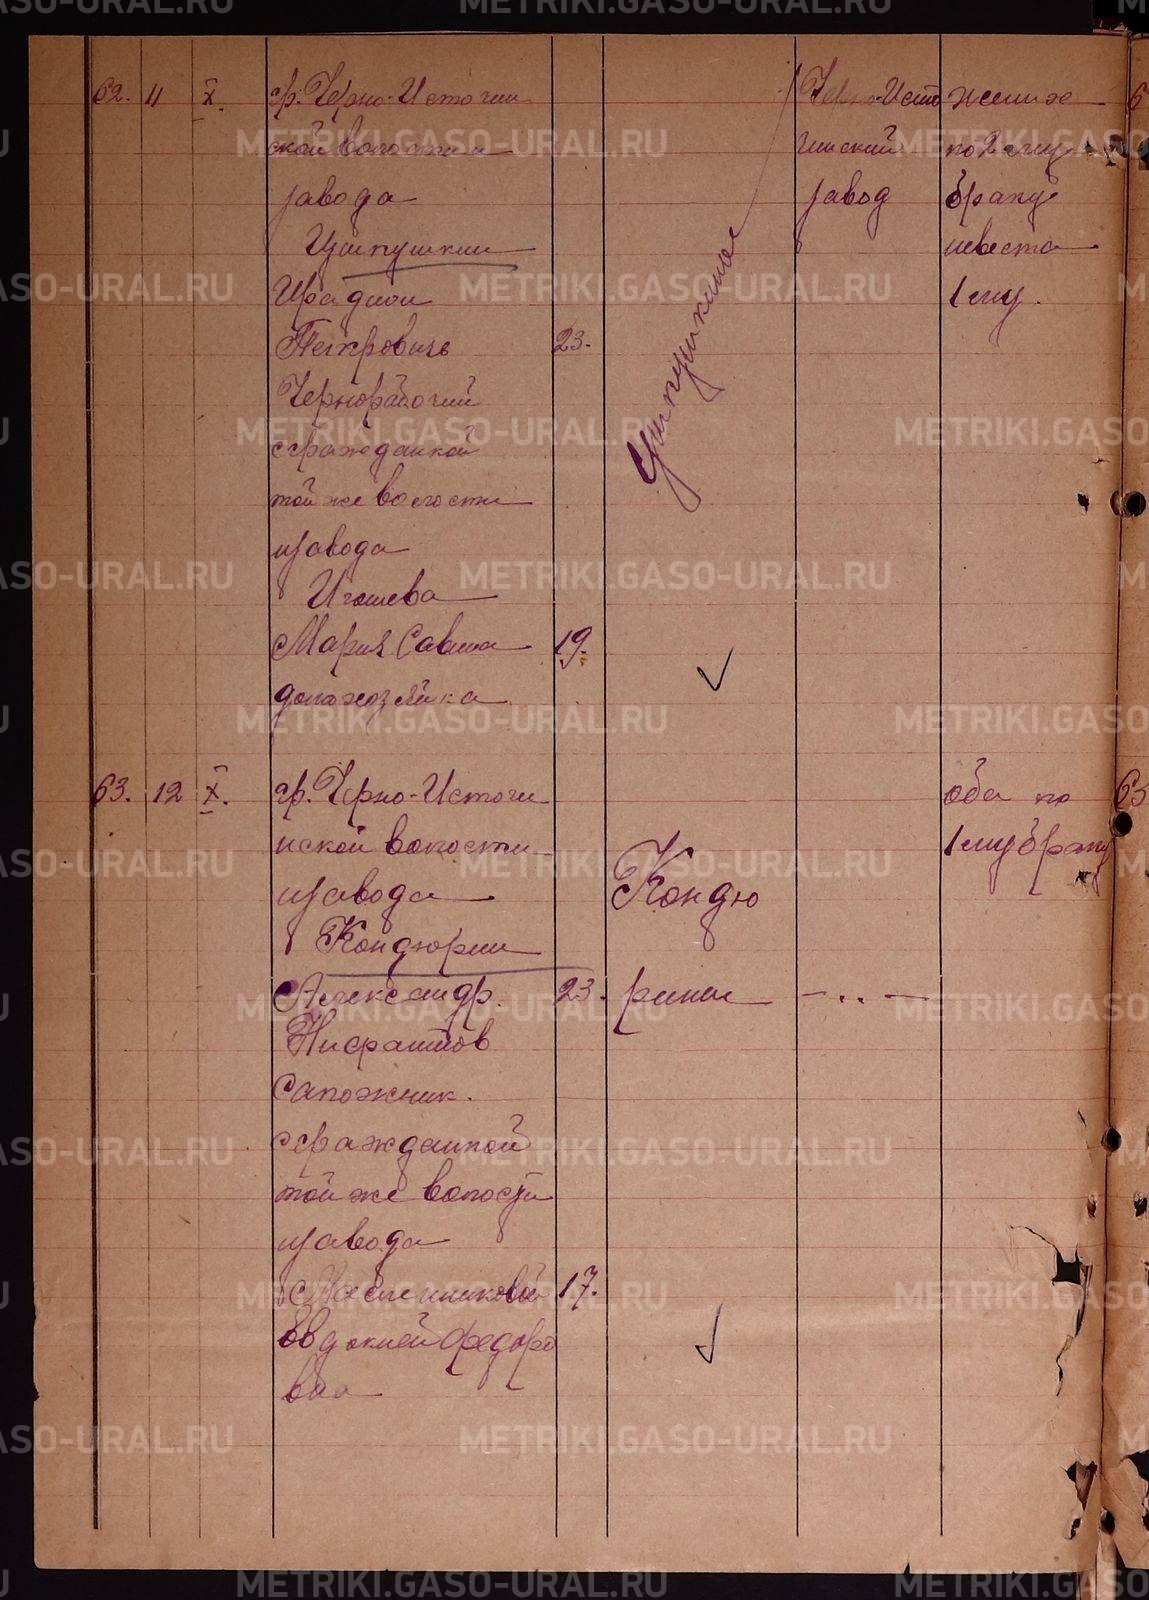 62. 11 X. гр. Черно-Источин
ской волости
завода
Цыпушкин
Ираднои
Петрович 23.
Чернорабочий
с гражданкой
той же волости
и завода
Игошева
Мария Савина 19.
домохозяйка
Цыпушкины
Черно-Исто
чинский
завод
жених
по 2 му
браку
невеста
1 му.
63. 12 X. гр. Черно-Источи
нской волости
и завода
Кондюрин
Александр. 23.
сапожник.
с гражданкой
той же волости
и завода
Масленниковой 17.
Евдокией Федоро
вна
Кондю
рины
— .. —
оба по
1 му браку
6
63
METRIKI.GASO-URAL.RU